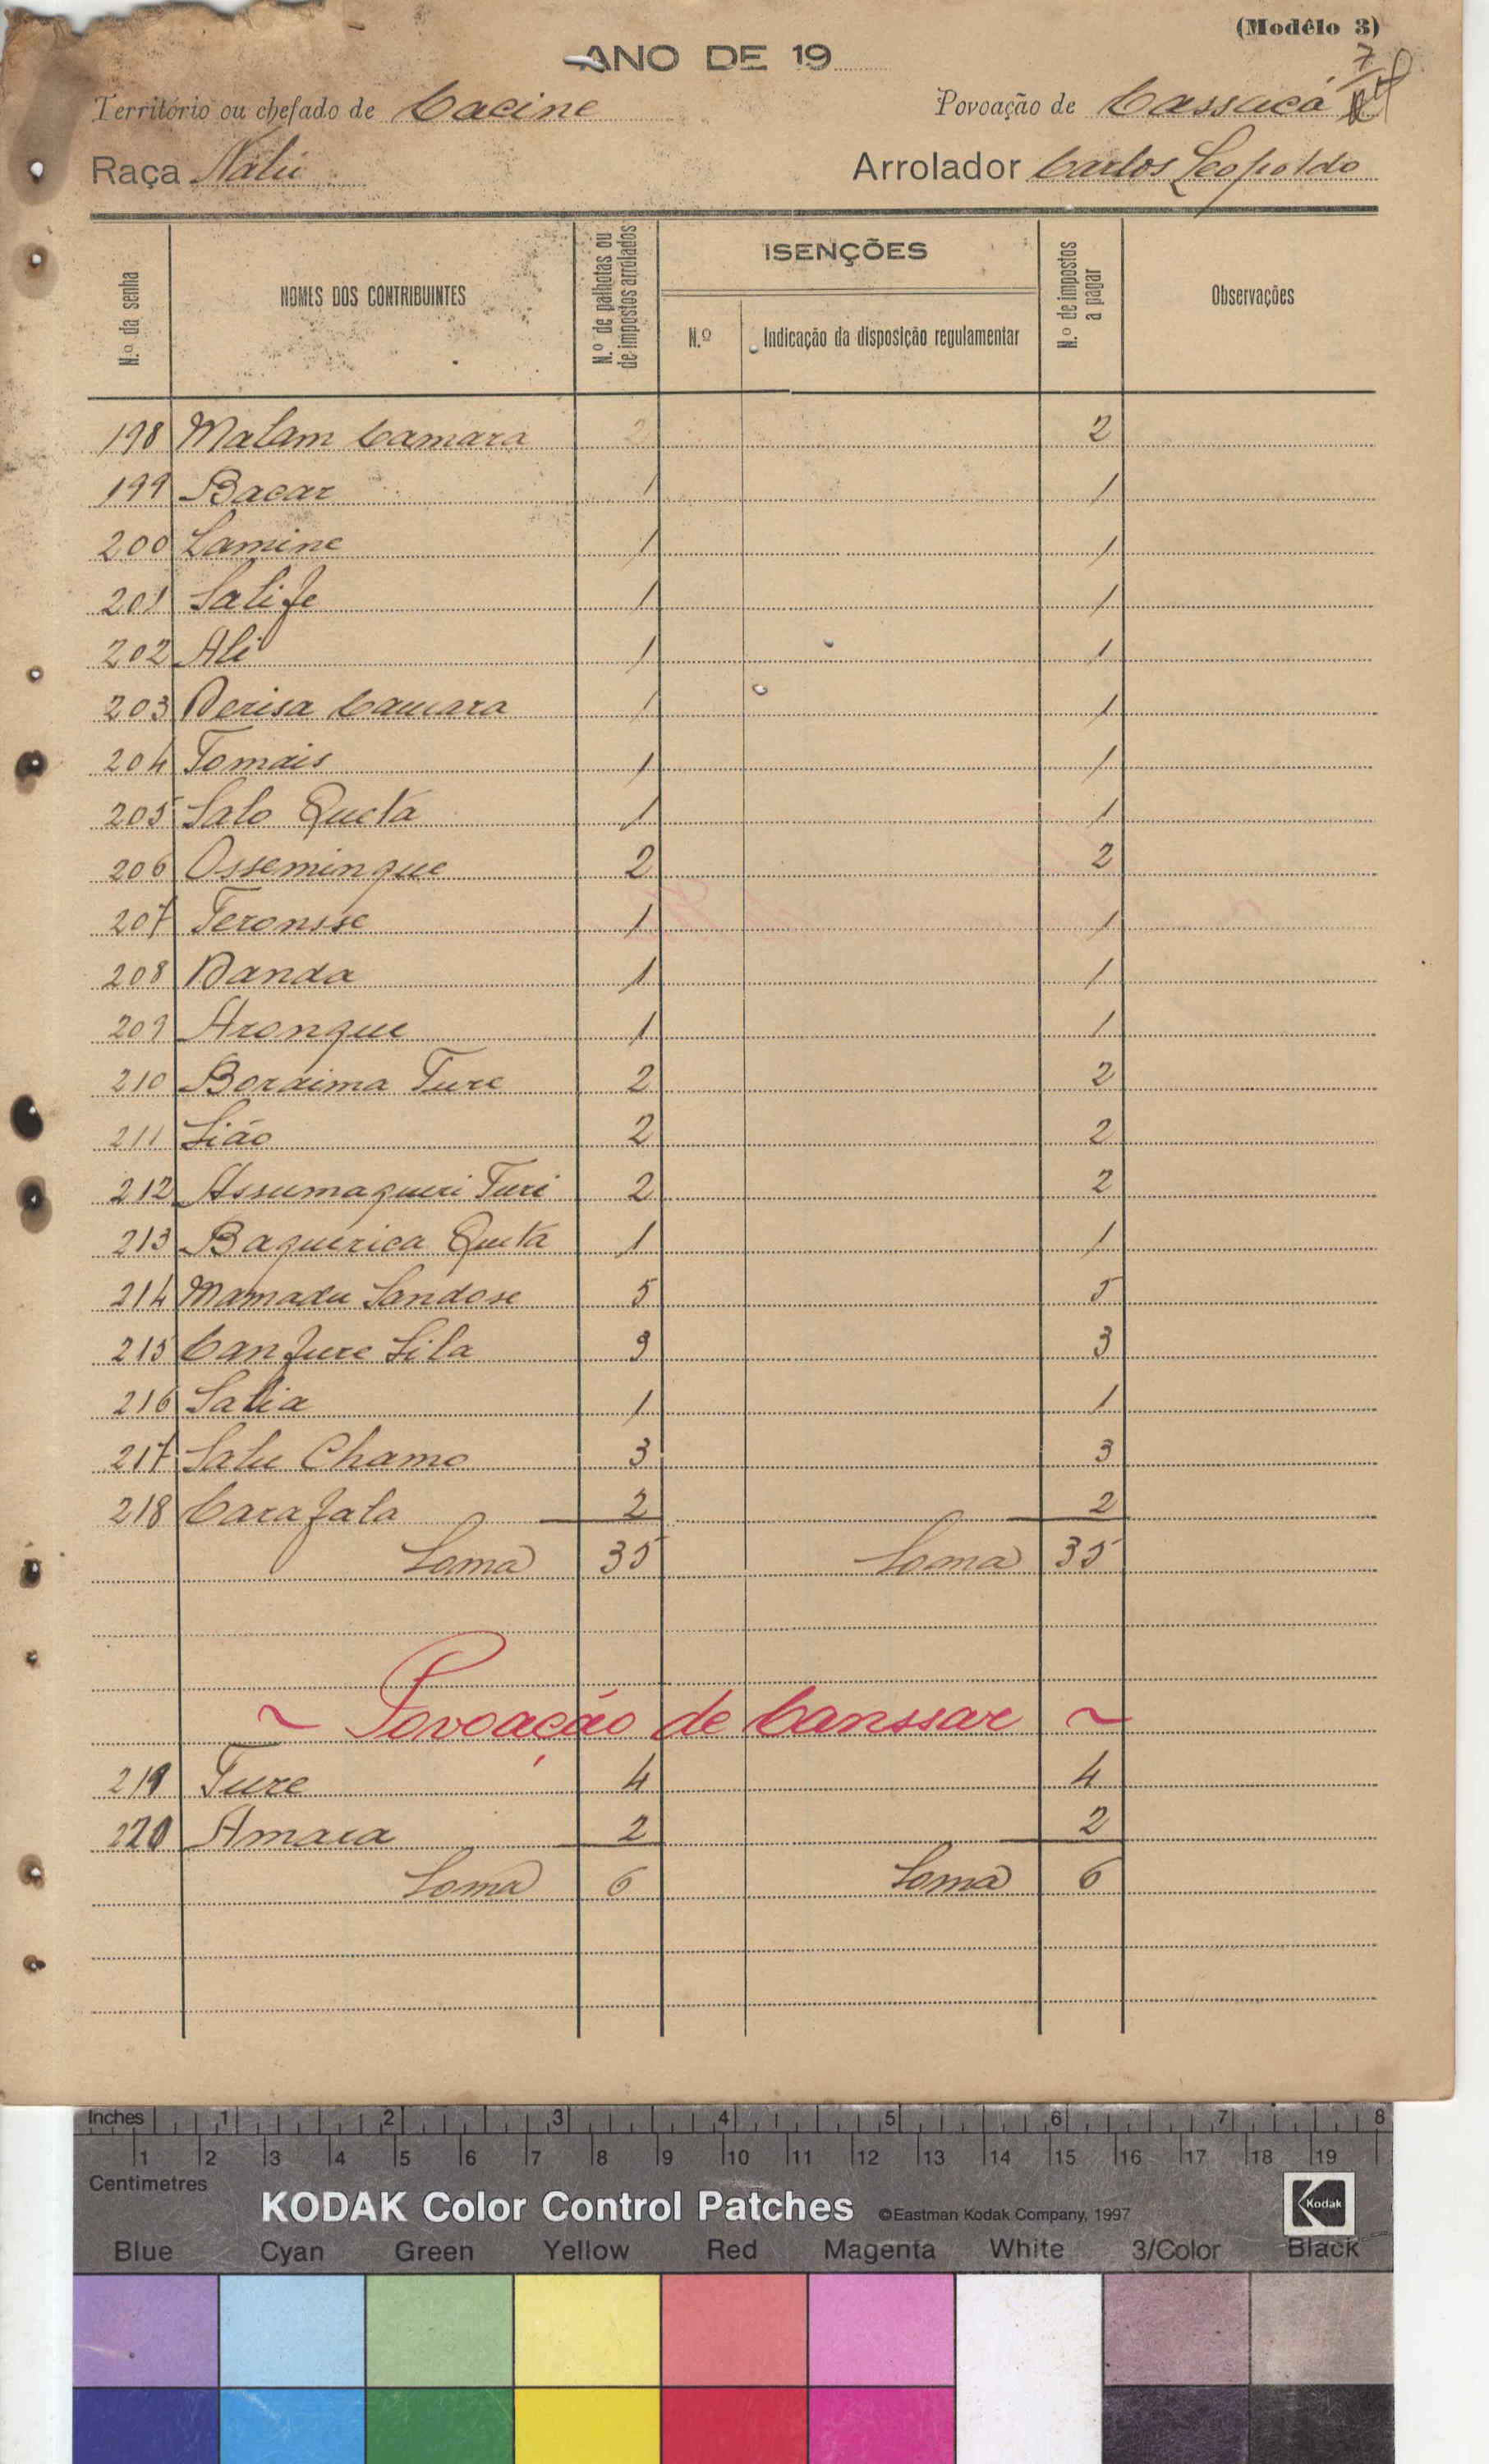 (Modêlo 3)
ANO DE 19
7
Território ou chefado de Cacine Povoação de Cassacá
Raça Nalú Arrolador Carlos Leopoldo
N.º da senha
NOMES DOS CONTRIBUINTES
N.º de palhotas ou de impostos arrolados
ISENÇÕES
N.º
Indicação da disposição regulamentar
N.º de impostos a pagar
Observações
198 Malam Camara 2 2
199 Bacar 1 1
200 Lamine 1 1
201 Salife 1 1
202 Ali 1 1
203 Derisa Camara 1 1
204 Tomais 1 1
205 Salo Queta 1 1
206 Ossemingue 2 2
207 Feronsse 1 1
208 Danda 1 1
209 Arongue 1 1
210 Boraima Ture 2 2
211 Sião 2 2
212 Assumagueri Turi 2 2
213 Baquerica Queta 1 1
214 Mamadu Sandose 5 5
215 Canfure Sila 3 3
216 Salia 1 1
217 Salu Chamo 3 3
218 Carafala 2 2
Soma 35 Soma 35
~ Povoação de Canssar ~
219 Ture 4 4
220 Amara 2 2
Soma 6 Soma 6
Inches 1 2 3 4 5 6 7 8
1 2 3 4 5 6 7 8 9 10 11 12 13 14 15 16 17 18 19
Centimetres
KODAK Color Control Patches ©Eastman Kodak Company, 1997 Kodak
Blue Cyan Green Yellow Red Magenta White 3/Color Black